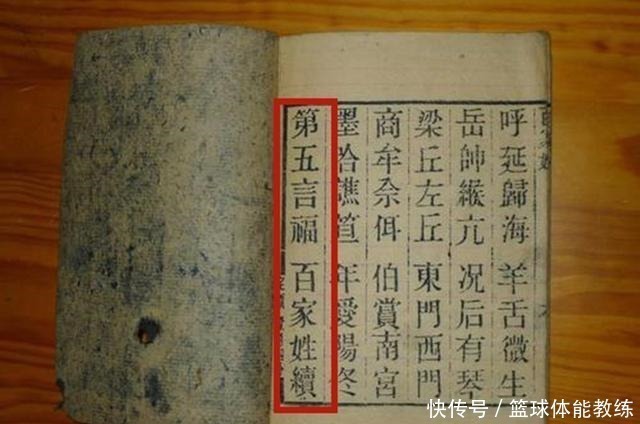 呼延歸海 羊舌微生
岳帥緱亢 况后有琴
梁丘左丘 東門西門
商牟佘佴 伯賞南宮
墨哈譙笪 年愛陽佟
第五言福 百家姓續
快传号／篮球体能教练